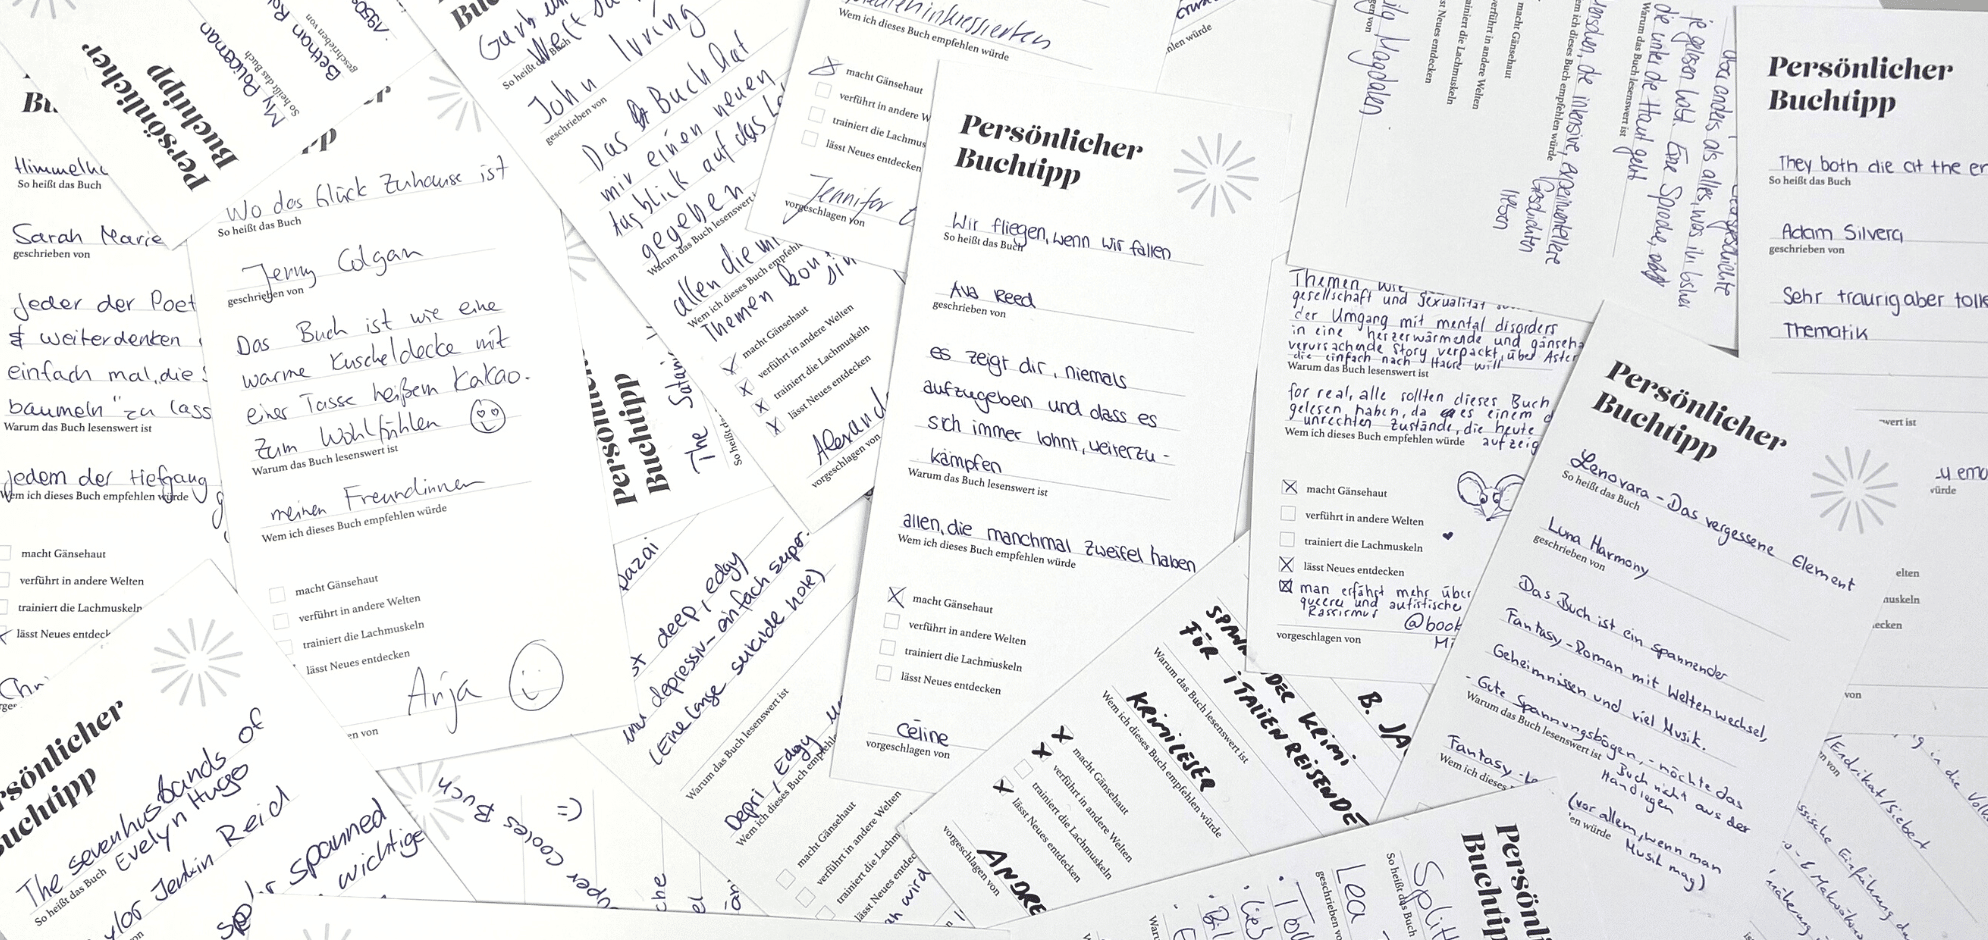 Himmelhc
So heißt das Buch
Sarah Marie
geschrieben von
Jeder der Poet
& weiterdenken
einfach mal „die S
baumeln" zu lass
Warum das Buch lesenswert ist
jedem der Tiefgang
Wem ich dieses Buch empfehlen würde
macht Gänsehaut
verführt in andere Welten
trainiert die Lachmuskeln
lässt Neues entdeck
Persönlicher
Buchtipp
My Policeman
So heißt das Buch
Bethan Ro
geschrieben von
Wo das Glück Zuhause ist
So heißt das Buch
Jenny Colgan
geschrieben von
Das Buch ist wie eine
warme Kuscheldecke mit
einer Tasse heißem Kakao.
Zum Wohlfühlen
Warum das Buch lesenswert ist
meinen Freundinnen
Wem ich dieses Buch empfehlen würde
macht Gänsehaut
verführt in andere Welten
trainiert die Lachmuskeln
lässt Neues entdecken
Anja
en von
rsönlicher
uchtipp
The seven husbands of
Evelyn Hugo
So heißt das Buch
ylor Jenkin Reid
spanned
wichtige
So heißt das Buch
John Irving
geschrieben von
Das Buch hat
mir einen neuen
Ausblick auf das Le
gegeben
Warum das Buch lesenswert
allen die mi
Wem ich dieses Buch empfehle
Themen
macht Gänsehaut
verführt in andere Welten
trainiert die Lachmuskeln
lässt Neues entdecken
Alexand
vorgeschlagen von
Buchtipp
The Satani
So heißt
Wem ich dieses Buch empfehlen würde
macht Gänsehaut
verführt in andere W
trainiert die Lachmus
lässt Neues entdecken
Jennifer
vorgeschlagen von
Dazai
st deep, edgy
depressiv - einfach super.
(Eine lange suicide note)
Warum das Buch lesenswert ist
Depri, Edgy
Wem ich dieses Buch empfehle
macht Gänsehaut
verführt in andere Welten
trainiert die Lachm
lässt Neues entdec
super cooles Buch
(=
Persönlicher
Buchtipp
Wir fliegen, wenn wir fallen
So heißt das Buch
Ava Reed
geschrieben von
es zeigt dir, niemals
aufzugeben und dass es
sich immer lohnt, weiterzu-
kämpfen
Warum das Buch lesenswert ist
allen, die manchmal Zweifel haben
Wem ich dieses Buch empfehlen würde
macht Gänsehaut
verführt in andere Welten
trainiert die Lachmuskeln
lässt Neues entdecken
Céline
vorgeschlagen von
DER KRIMI
FÜR ITALIENREISENDE
Warum das Buch lesenswert ist
KRIMILESER
Wem ich dieses Buch empfehlen würde
macht Gänsehaut
verführt in andere Welten
trainiert die Lachmuskeln
lässt Neues entdecken
ANDRE
vorgeschlagen von
B. JA
je gelesen habt. Eine Sprache,
die unter die Haut geht
Warum das Buch lesenswert ist
Menschen, die intensive, experimentellere
Geschichten
lieben
Wem ich dieses Buch empfehlen würde
macht Gänsehaut
verführt in andere Welten
trainiert die Lachmuskeln
lässt Neues entdecken
Magdalen
Themen, wie
gesellschaft und Sexualität
der Umgang mit mental disorders
in eine herzerwärmende und gänseha
verursachende Story verpackt, über Aster
die einfach nach Hause will
Warum das Buch lesenswert ist
for real, alle sollten dieses Buch
gelesen haben, da es einem d
unrechten Zustände, die heute
aufzeig
Wem ich dieses Buch empfehlen würde
macht Gänsehaut
verführt in andere Welten
trainiert die Lachmuskeln
lässt Neues entdecken
man erfährt mehr über
queere und autistische
Rassismus
@book
Mi
vorgeschlagen von
Persönlicher
Buchtipp
They both die at the en
So heißt das Buch
Adam Silvera
geschrieben von
Sehr traurig aber tolle
Thematik
Persönlicher
Buchtipp
Lenovara - Das vergessene Element
So heißt das Buch
Luna Harmony
geschrieben von
Das Buch ist ein spannender
Fantasy-Roman mit Weltenwechsel,
Geheimnissen und viel Musik.
- Gute Spannungsbögen, - möchte das
Buch nicht aus der
Hand legen
Warum das Buch lesenswert ist
Fantasy-
(vor allem, wenn man
Musik mag)
Wem ich dieses
en würde
Persönl
Buchtip
Split
So heißt das Buch
Lea
geschrieben von